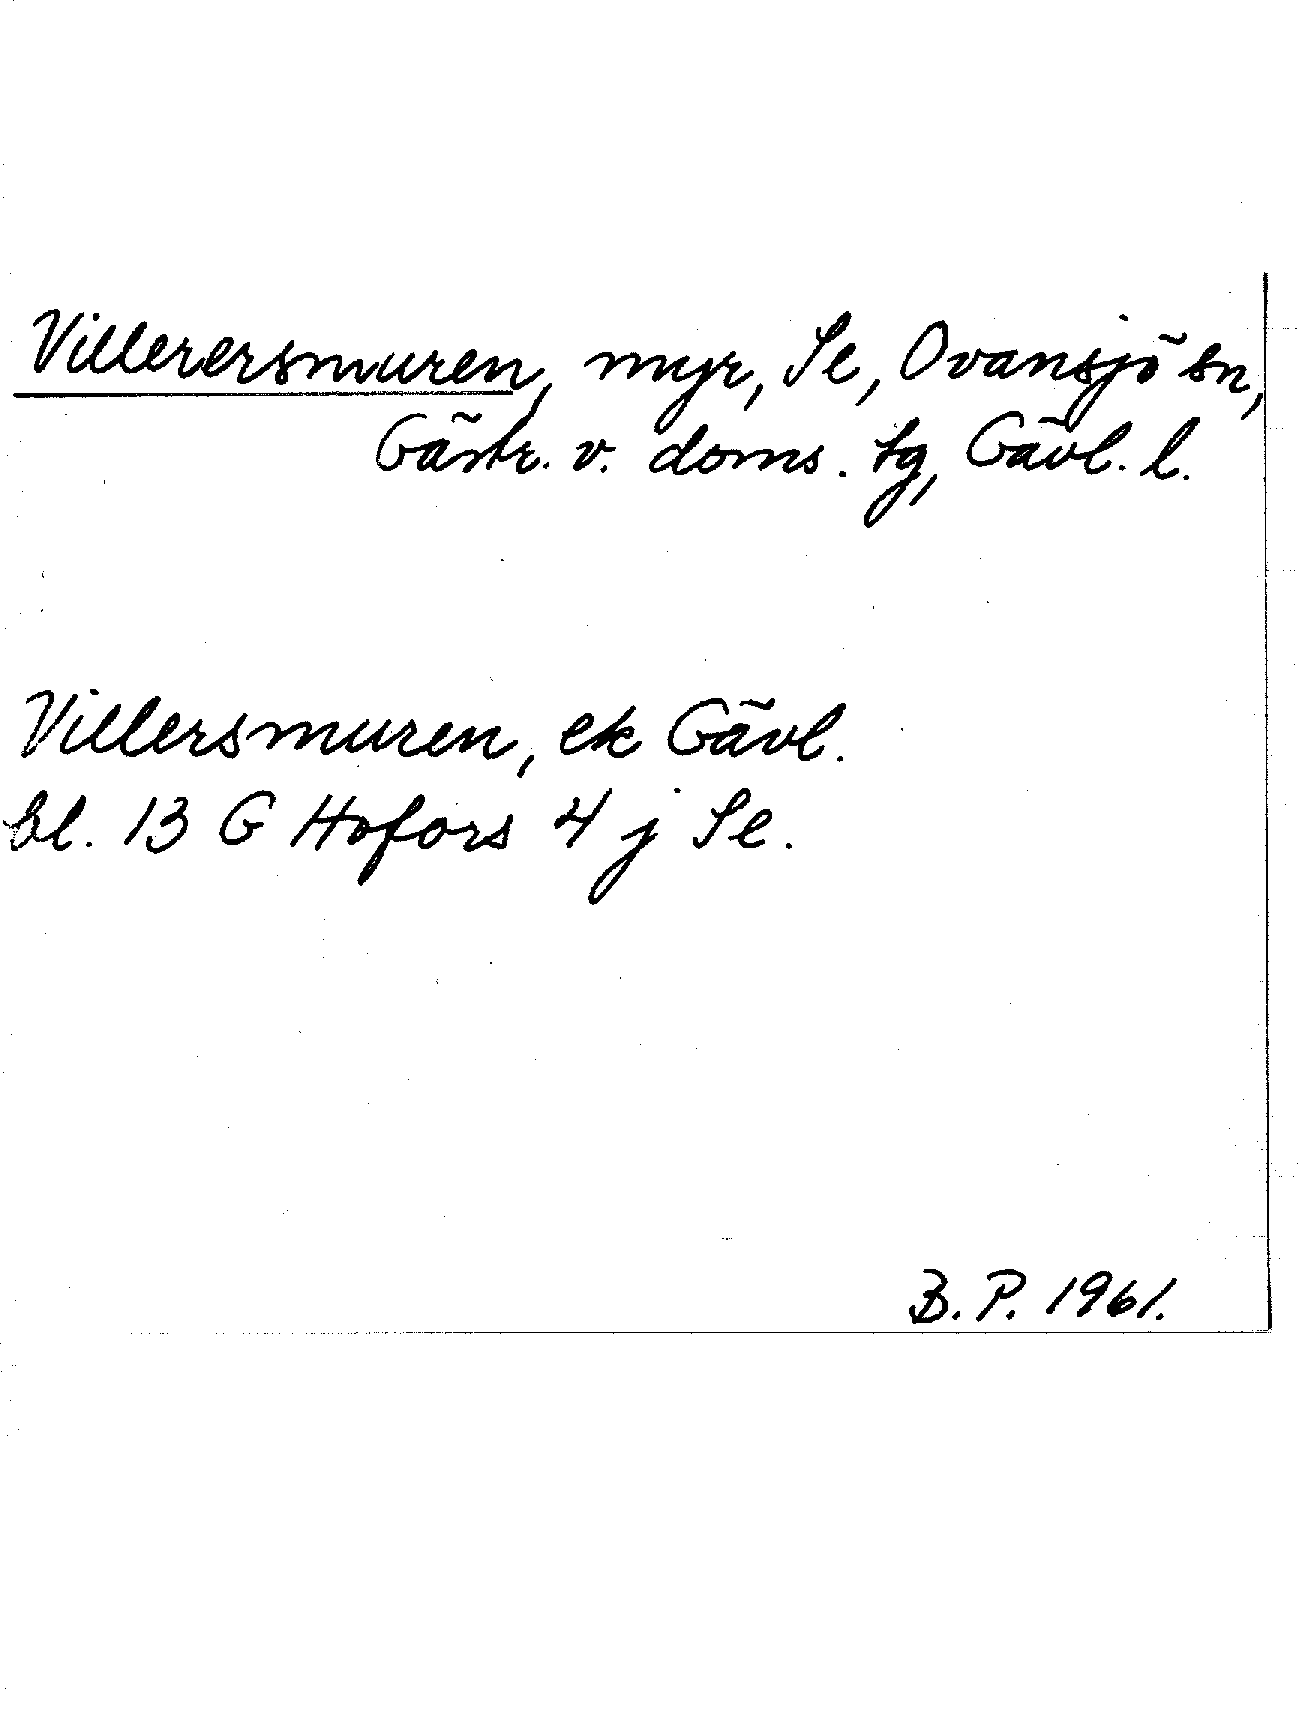 Villerersmuren, myr, Se, Ovansjö sn,
Gästr. v. doms. tg, Gävl. l.
Villersmuren, ek Gävl.
bl. 13 G Hofors 4 j Se.
B. P. 1961.